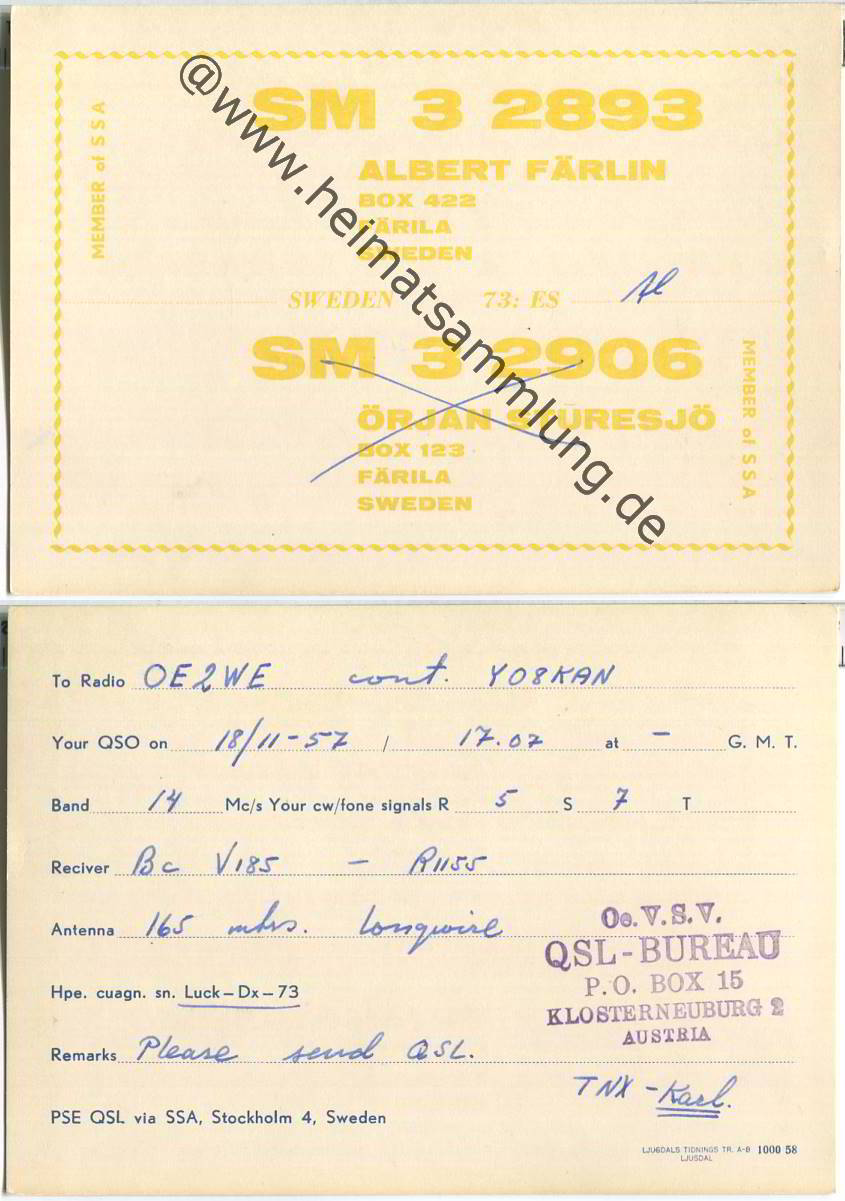 SM 3 2893
ALBERT FÄRLIN
BOX 422
FÄRILA
SWEDEN
MEMBER of SSA
SWEDEN 73: ES
SM 3 2906
ÖRJAN STÜRESJÖ
BOX 123
FÄRILA
SWEDEN
MEMBER of SSA
@www.heimatsammlung.de
To Radio OE2WE cont. YO8KAN
Your QSO on 18/11-57 / 17.07 at - G. M. T.
Band 14 Mc/s Your cw/fone signals R 5 S 7 T
Reciver Bc V185 - R1155
Antenna 165 mtrs. longwire
Oe.V.S.V.
QSL-BUREAU
P.O. BOX 15
KLOSTERNEUBURG 2
AUSTRIA
Hpe. cuagn. sn. Luck-Dx-73
Remarks Please send QSL.
TNX - Karl.
PSE QSL via SSA, Stockholm 4, Sweden
LJUSDALS TIDNINGS TR. A-B 1000 58
LJUSDAL